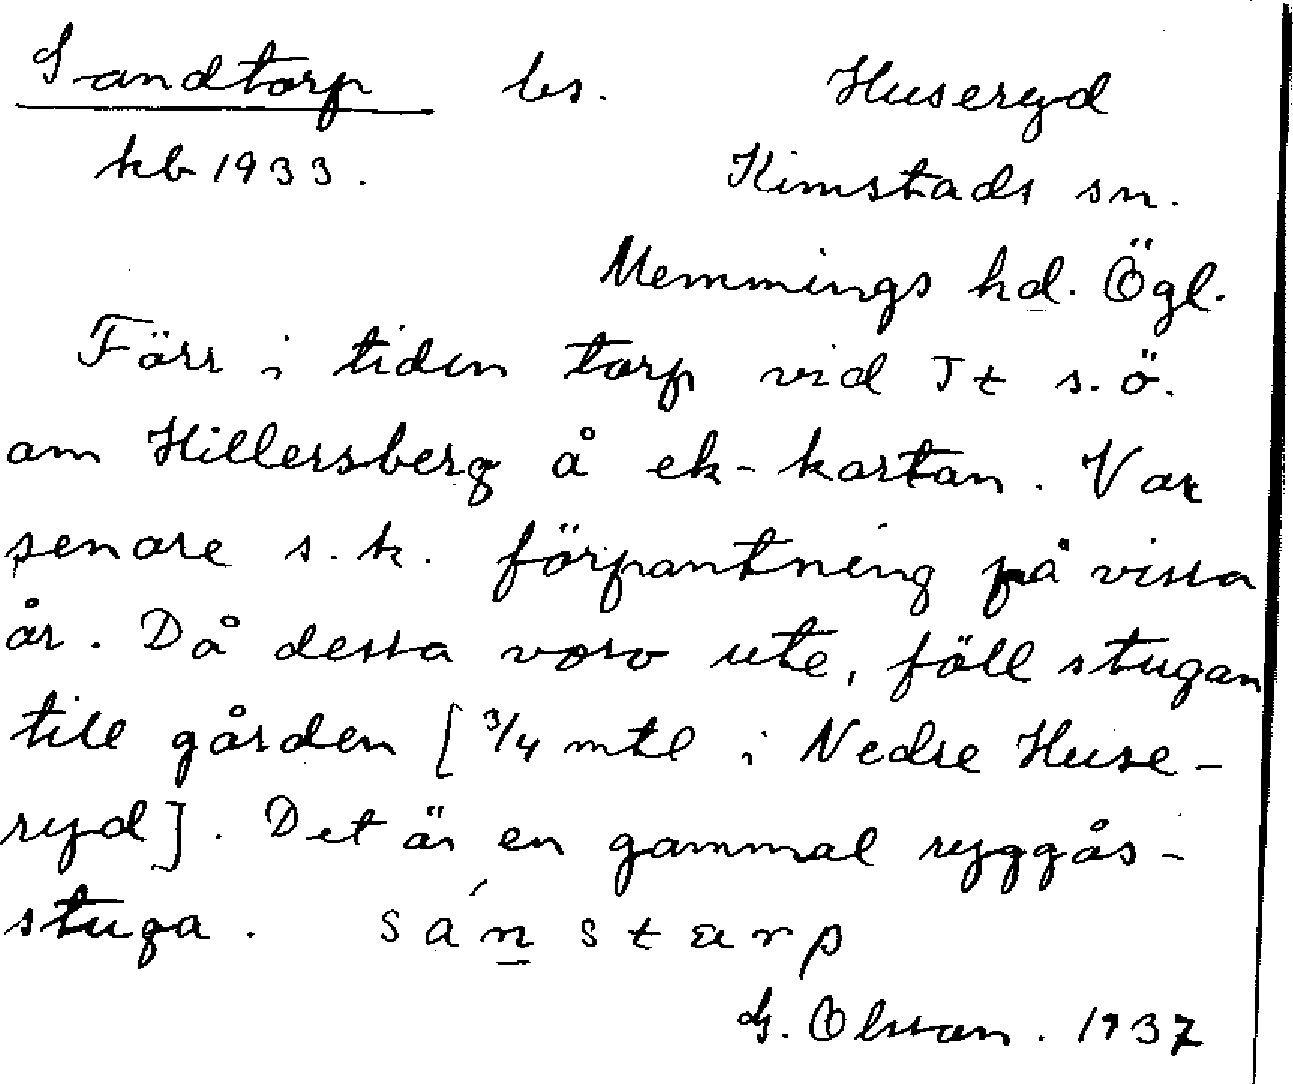 Sandtorp bs. Huseryd
kb 1933. Kimstads sn.
Memmings hd. Ögl.
Förr i tiden torp vid Jt s.ö.
om Hillersberg å ek-kartan. Var
senare s.k. förpantning på vissa
år. Då dessa voro ute, föll stugan
till gården [3/4 mtl i Nedre Huse-
ryd]. Det är en gammal ryggås-
stuga. sánstarp
G. Olsson. 1937